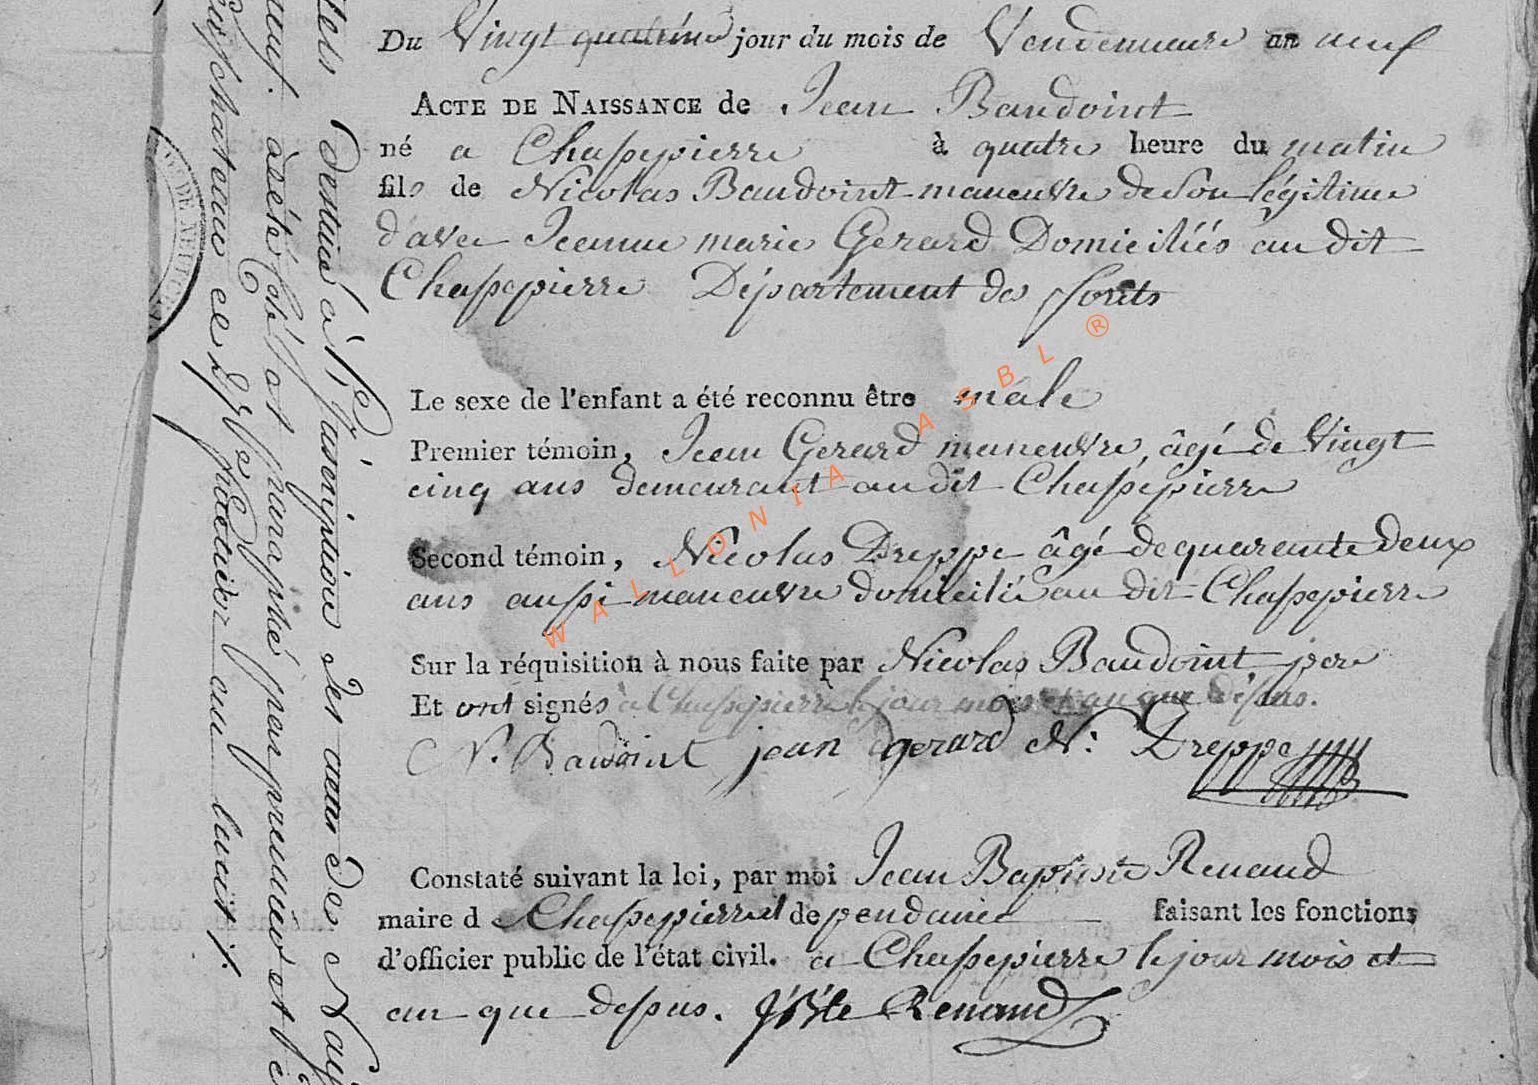 Du Vingt quatrieme jour du mois de Vendemiaire an neuf
ACTE DE NAISSANCE de Jean Baudoint
né a Chassepierre à quatre heure du matin
fils de Nicolas Baudoint maneuvre de Son légitime
d'avec Jeanne marie Gerard Domiciliés au dit
Chassepierre Département des forêts
Le sexe de l'enfant a été reconnu être mâle
Premier témoin, Jean Gerard maneuvre, âgé de Vingt
cinq ans demeurant au dit Chassepierre
Second témoin, Nicolas Dreppe âgé de quarante deux
ans aussi maneuvre domicilié au dit Chassepierre
Sur la réquisition à nous faite par Nicolas Baudoint pere
Et ont signés à Chassepierre le jour mois et an que dessus.
N. Baudoint jean gerard N: Dreppe
Constaté suivant la loi, par moi Jean Baptiste Renaud
maire d Chassepierre et dependance faisant les fonctions
d'officier public de l'état civil. a Chassepierre le jour mois et
an que dessus. JBte Renaud
WALLONIA ASBL ®
destiné à l'Inscription des actes de Nais
neuf. a été coté et paraphé par premier et
Neufchateau